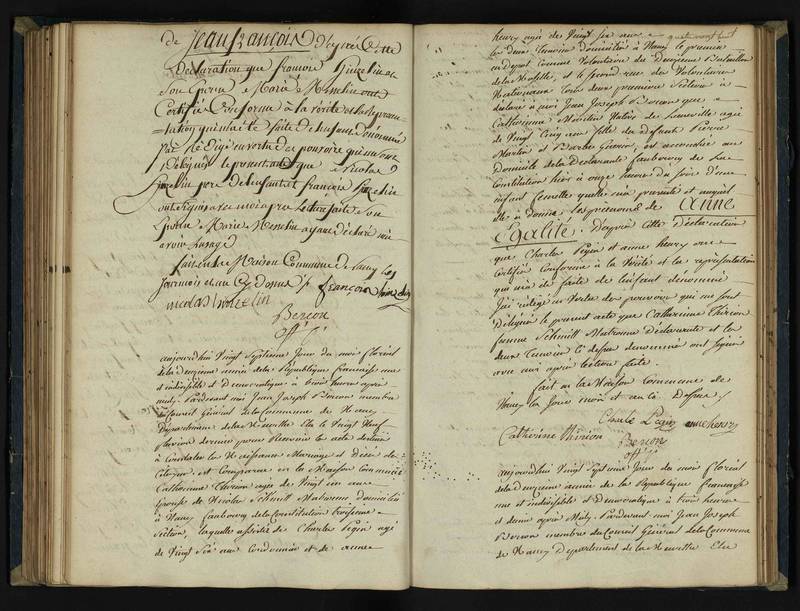 de Jean françois D'après Cette
Déclaration que françois
Son Epoux & Marie Menchin ont
Certifié Conforme à la vérité et la Représen
=tation qui m'a été faite de l'enfant dénommé
j'ai Rédigé en vertu des pouvoirs qui me sont
Délégués le présent acte que Nicolas
père de l'enfant et françois
ont Signés avec moi après Lecture faite Son
Epouse Marie Menchin ayant Déclaré n'en
avoir l'usage
fait en la Maison Commune de Nancy les
Jour mois et an Cy Dessus françois
nicolas
Berçon
off. p.
aujourd'hui Vingt Septieme Jour du mois floréal
de la deuxieme année de la Republique francaise une
et indivisible et Democratique à trois heures après
midy. Pardevant moi Jean Joseph Berçon membre
du Conseil Général de la Commune de Nancy
Département de la Meurthe Elu le Vingt Neuf
dernier pour Recevoir les actes destinés
à Constater les Naissances Mariages et Décès des
Citoyens, est Comparue en la Maison Commune
Catherine Thirion agée de Vingt un ans
Epouse de Nicolas Schmitt Matronne domiciliée
à Nancy faubourg de la Constitution troisieme
Section, laquelle assistée de Charles Pégin agé
de Vingt Six ans Cordonnier et de anne
henry agée de Vingt six ans
les deux Temoins domiciliés à Nancy le premier
en Depot Comme Volontaire du Deuzieme Bataillon
de la Moselle, et le second rue des Volontaires
Nationaux tous deux premiere Section a
déclaré à moi Jean Joseph Berçon que
Catherinne Martin Native de Luneville agée
de Vingt Cinq ans fille de Defunt Pierre
Martin et Barbe, est accouchée au
Domicile de la Déclarante faubourg de La
Constitution hier à onze heures du Soir d'une
enfant femelle quelle m'a presenté et auquel
elle a donné les prénoms de Anne
Egalité. D'après cette Déclaration
que Charles Pégin et anne henry ont
Certifiée Conforme à la Vérité et la représentation
qui m'a été faite de l'enfant denommé
J'ai rédigé en Vertu des pouvoirs qui me sont
Délégués le present acte que Catharinne Thirion
femme Schmitt Matronne Déclarante et les
deux Temoins ci dessus denommés ont signés
avec moi après lecture faite
fait en la Maison Commune de
Nancy les Jour mois et an ci Dessus.
Charle Pegin anne henry
Catherine thirion
Berçon
off. p.
aujourd'hui Vingt Septieme Jour du mois floréal
de la deuxieme année de la Republique francaise
une et indivisible et Democratique à trois heures
et demie après Midy. Pardevant moi Jean Joseph
Berçon membre du Conseil Général de la Commune
de Nancy Département de la Meurthe Elu